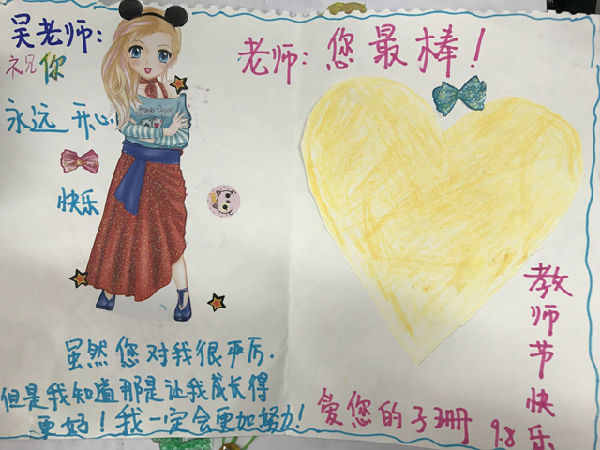 吴老师：
祝你
永远 开心
快乐
虽然您对我很严厉.
但是我知道那是让我成长得
更好！我一定会更加努力！
老师：您最棒！
教师节快乐
爱您的子珊
9.8